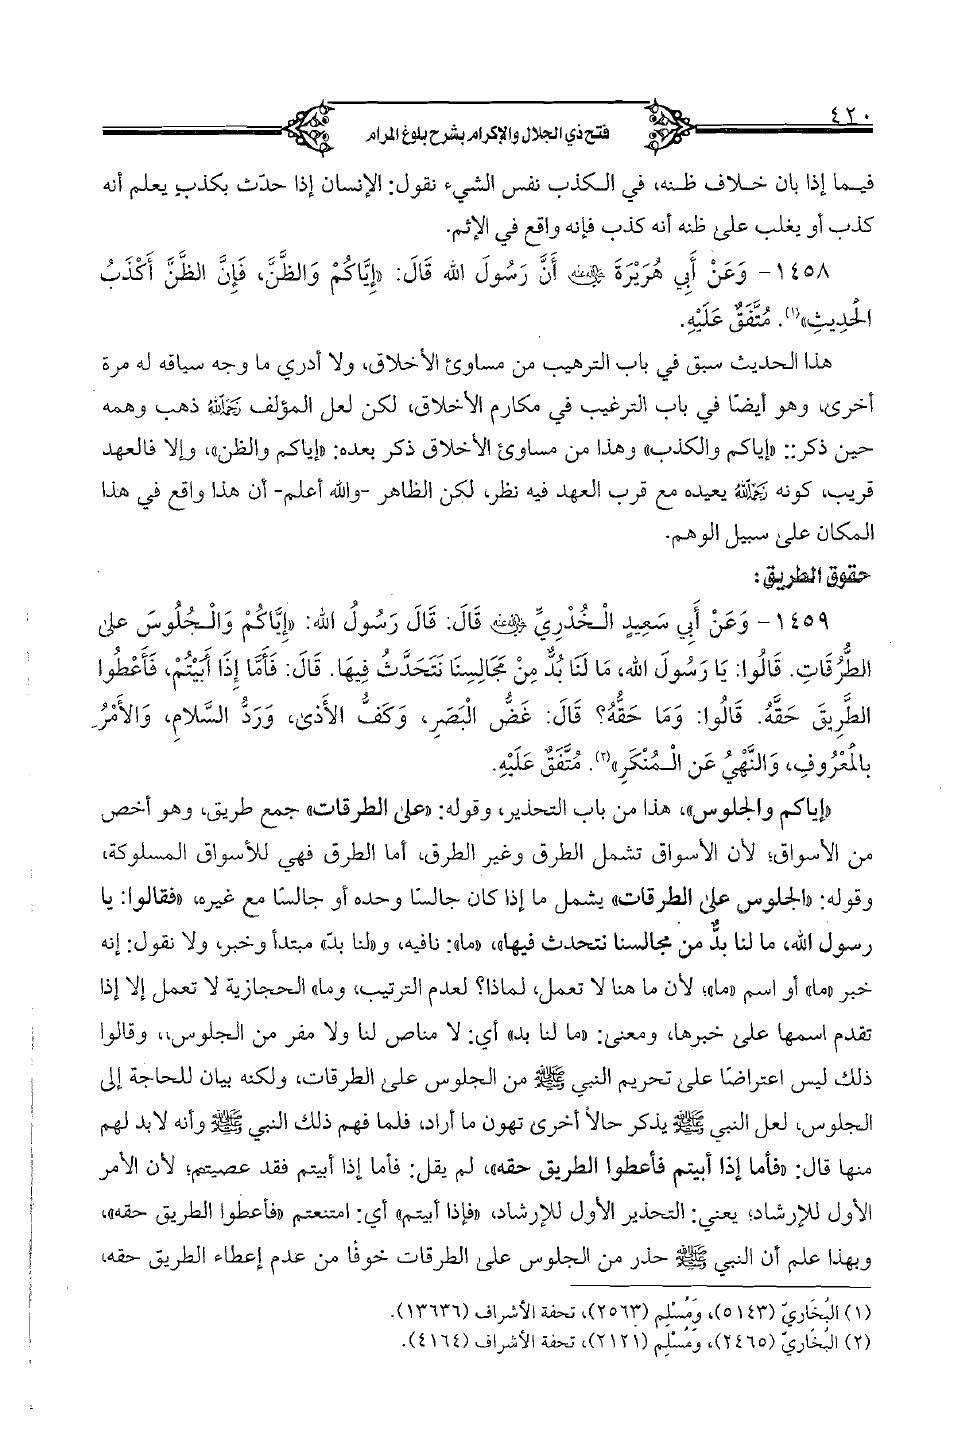 ٤٢٠
فتح ذي الجلال والإكرام بشرح بلوغ المرام
فيما إذا بان خلاف ظنه، في الكذب نفس الشيء نقول: الإنسان إذا حدّث بكذب يعلم أنه
كذب أو يغلب على ظنه أنه كذب فإنه واقع في الإثم.
١٤٥٨- وَعَنْ أَبِي هُرَيْرَةَ رضي الله عنه أَنَّ رَسُولَ الله قَالَ: «إِيَّاكُمْ وَالظَّنَّ، فَإِنَّ الظَّنَّ أَكْذَبُ
الْحَدِيثِ»(١). مُتَّفَقٌ عَلَيْهِ.
هذا الحديث سبق في باب الترهيب من مساوئ الأخلاق، ولا أدري ما وجه سياقه له مرة
أخرى، وهو أيضًا في باب الترغيب في مكارم الأخلاق، لكن لعل المؤلف رحمه الله ذهب وهمه
حين ذكر:: «إياكم والكذب» وهذا من مساوئ الأخلاق ذكر بعده: «إياكم والظن»، وإلا فالعهد
قريب، كونه رحمه الله يعيده مع قرب العهد فيه نظر، لكن الظاهر -والله أعلم- أن هذا واقع في هذا
المكان على سبيل الوهم.
حقوق الطريق:
١٤٥٩- وَعَنْ أَبِي سَعِيدٍ الْخُدْرِيِّ رضي الله عنه قَالَ: قَالَ رَسُولُ الله: «إِيَّاكُمْ وَالْجُلُوسَ عَلَى
الطُّرُقَاتِ. قَالُوا: يَا رَسُولَ الله، مَا لَنَا بُدٌّ مِنْ مَجَالِسِنَا نَتَحَدَّثُ فِيهَا. قَالَ: فَأَمَّا إِذَا أَبَيْتُمْ، فَأَعْطُوا
الطَّرِيقَ حَقَّهُ. قَالُوا: وَمَا حَقُّهُ؟ قَالَ: غَضُّ الْبَصَرِ، وَكَفُّ الأَذَى، وَرَدُّ السَّلامِ، وَالأَمْرُ
بِالْمَعْرُوفِ، وَالنَّهْيُ عَنِ الْمُنْكَرِ»(٢). مُتَّفَقٌ عَلَيْهِ.
«إياكم والجلوس»، هذا من باب التحذير، وقوله: «على الطرقات» جمع طريق، وهو أخص
من الأسواق؛ لأن الأسواق تشمل الطرق وغير الطرق، أما الطرق فهي للأسواق المسلوكة،
وقوله: «الجلوس على الطرقات» يشمل ما إذا كان جالسًا وحده أو جالسًا مع غيره، «فقالوا: يا
رسول الله، ما لنا بدٌّ من مجالسنا نتحدث فيها»، «ما»: نافيه، و«لنا بدّ» مبتدأ وخبر، ولا نقول: إنه
خبر «ما» أو اسم «ما»؛ لأن ما هنا لا تعمل، لماذا؟ لعدم الترتيب، وما» الحجازية لا تعمل إلا إذا
تقدم اسمها على خبرها، ومعنى: «ما لنا بد» أي: لا مناص لنا ولا مفر من الجلوس،، وقالوا
ذلك ليس اعتراضًا على تحريم النبي ﷺ من الجلوس على الطرقات، ولكنه بيان للحاجة إلى
الجلوس، لعل النبي ﷺ يذكر حالاً أخرى تهون ما أراد، فلما فهم ذلك النبي ﷺ وأنه لابد لهم
منها قال: «فأما إذا أبيتم فأعطوا الطريق حقه»، لم يقل: فأما إذا أبيتم فقد عصيتم؛ لأن الأمر
الأول للإرشاد؛ يعني: التحذير الأول للإرشاد، «فإذا أبيتم» أي: امتنعتم «فأعطوا الطريق حقه»،
وبهذا علم أن النبي ﷺ حذر من الجلوس على الطرقات خوفًا من عدم إعطاء الطريق حقه،
(١) البُخَاريّ (٥١٤٣)، وَمُسْلِم (٢٥٦٣)، تحفة الأشراف (١٣٦٣٦).
(٢) البُخَاريّ (٢٤٦٥)، وَمُسْلِم (٢١٢١)، تحفة الأشراف (٤١٦٤).